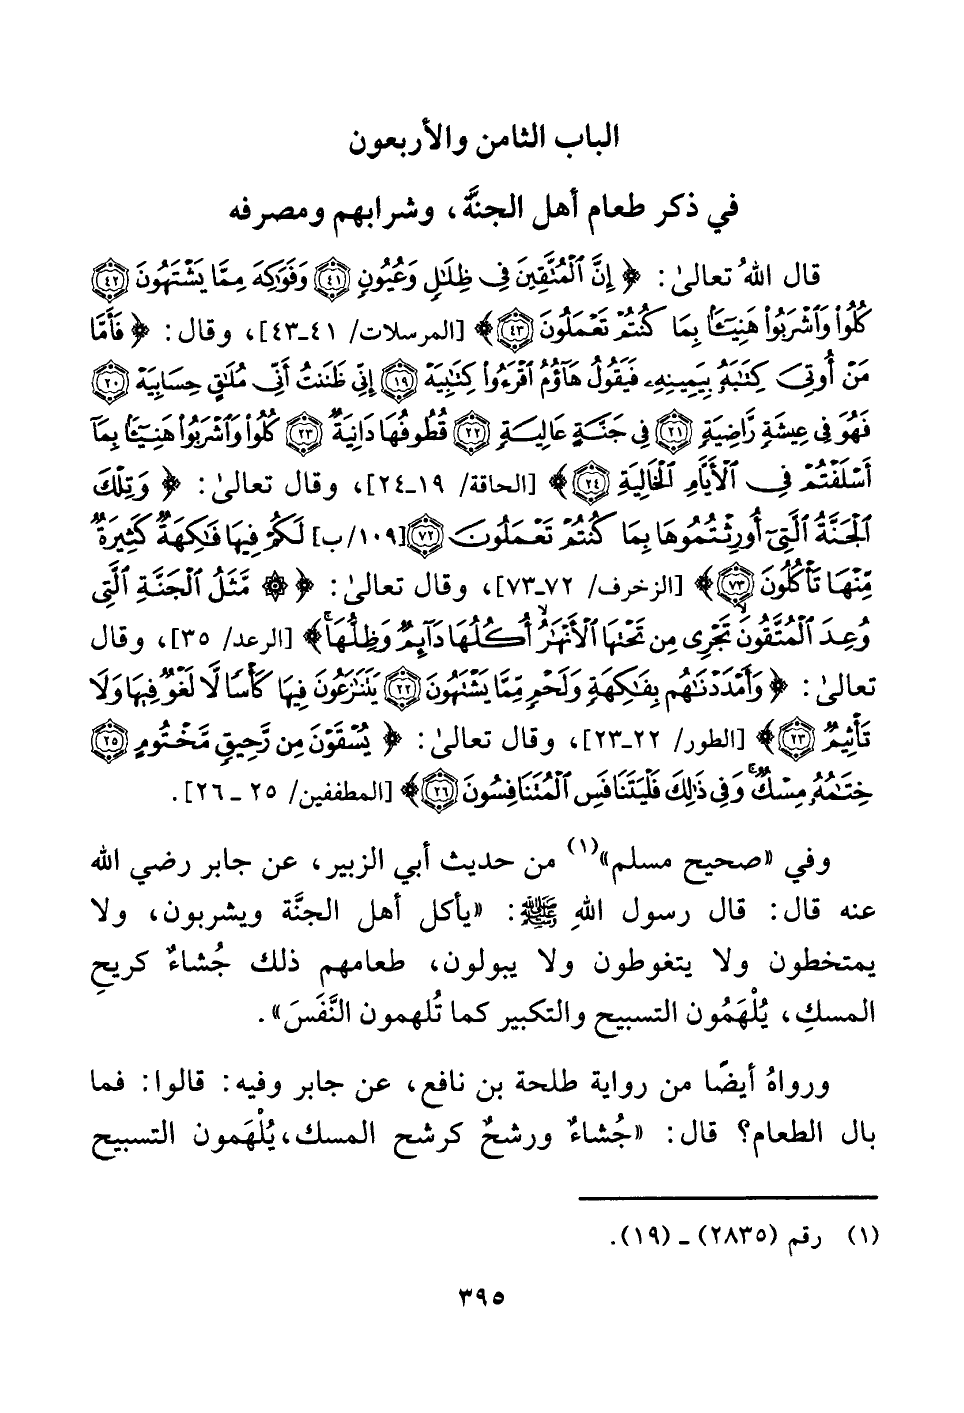 الباب الثامن والأربعون
في ذكر طعام أهل الجنَّة، وشرابهم ومصرفه
قال اللهُ تعالىٰ: ﴿إِنَّ ٱلْمُتَّقِينَ فِى ظِلَٰلٍ وَعُيُونٍ ۝٤١ وَفَوَٰكِهَ مِمَّا يَشْتَهُونَ ۝٤٢
كُلُوا۟ وَٱشْرَبُوا۟ هَنِيٓـًٔۢا بِمَا كُنتُمْ تَعْمَلُونَ ۝٤٣﴾ [المرسلات/ ٤١-٤٣]، وقال: ﴿فَأَمَّا
مَنْ أُوتِىَ كِتَٰبَهُۥ بِيَمِينِهِۦ فَيَقُولُ هَآؤُمُ ٱقْرَءُوا۟ كِتَٰبِيَهْ ۝١٩ إِنِّى ظَنَنتُ أَنِّى مُلَٰقٍ حِسَابِيَهْ ۝٢٠
فَهُوَ فِى عِيشَةٍ رَّاضِيَةٍ ۝٢١ فِى جَنَّةٍ عَالِيَةٍ ۝٢٢ قُطُوفُهَا دَانِيَةٌ ۝٢٣ كُلُوا۟ وَٱشْرَبُوا۟ هَنِيٓـًٔۢا بِمَآ
أَسْلَفْتُمْ فِى ٱلْأَيَّامِ ٱلْخَالِيَةِ ۝٢٤﴾ [الحاقة/ ١٩-٢٤]، وقال تعالىٰ: ﴿وَتِلْكَ
ٱلْجَنَّةُ ٱلَّتِىٓ أُورِثْتُمُوهَا بِمَا كُنتُمْ تَعْمَلُونَ ۝٧٢ [١٠٩/ب] لَكُمْ فِيهَا فَٰكِهَةٌ كَثِيرَةٌ
مِّنْهَا تَأْكُلُونَ ۝٧٣﴾ [الزخرف/ ٧٢-٧٣]، وقال تعالىٰ: ﴿۞ مَّثَلُ ٱلْجَنَّةِ ٱلَّتِى
وُعِدَ ٱلْمُتَّقُونَ تَجْرِى مِن تَحْتِهَا ٱلْأَنْهَٰرُ أُكُلُهَا دَآئِمٌ وَظِلُّهَا﴾ [الرعد/ ٣٥]، وقال
تعالىٰ: ﴿وَأَمْدَدْنَٰهُم بِفَٰكِهَةٍ وَلَحْمٍ مِّمَّا يَشْتَهُونَ ۝٢٢ يَتَنَٰزَعُونَ فِيهَا كَأْسًا لَّا لَغْوٌ فِيهَا وَلَا
تَأْثِيمٌ ۝٢٣﴾ [الطور/ ٢٢-٢٣]، وقال تعالىٰ: ﴿يُسْقَوْنَ مِن رَّحِيقٍ مَّخْتُومٍ ۝٢٥
خِتَٰمُهُۥ مِسْكٌ وَفِى ذَٰلِكَ فَلْيَتَنَافَسِ ٱلْمُتَنَٰفِسُونَ ۝٢٦﴾ [المطففين/ ٢٥ - ٢٦].
وفي «صحيح مسلم»(١) من حديث أبي الزبير، عن جابر رضي الله
عنه قال: قال رسول اللهِ ﷺ: «يأكل أهل الجنَّة ويشربون، ولا
يمتخطون ولا يتغوطون ولا يبولون، طعامهم ذلك جُشاءٌ كريحِ
المسكِ، يُلْهَمُون التسبيح والتكبير كما تُلهمون النَّفَسَ».
ورواهُ أيضًا من رواية طلحة بن نافع، عن جابر وفيه: قالوا: فما
بال الطعام؟ قال: «جُشاءٌ ورشحٌ كرشح المسك،يُلْهَمون التسبيح
(١) رقم (٢٨٣٥) - (١٩).
٣٩٥